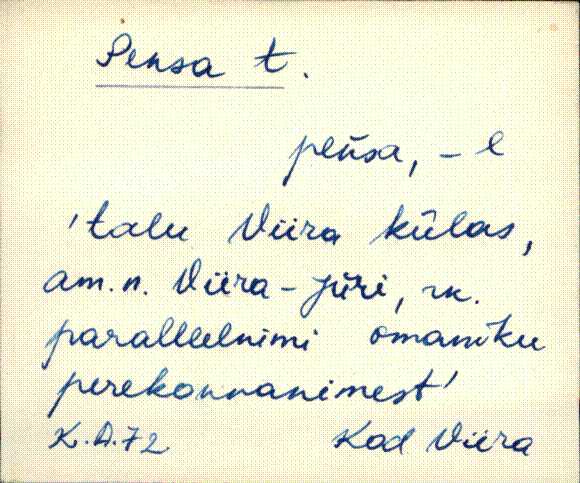 Pensa t.
peńsa, -e
'talu Viira külas,
am.n. Viira-Jüri, rk.
paralleelnimi omaniku
perekonnanimest'
K.A.72 Kod Viira